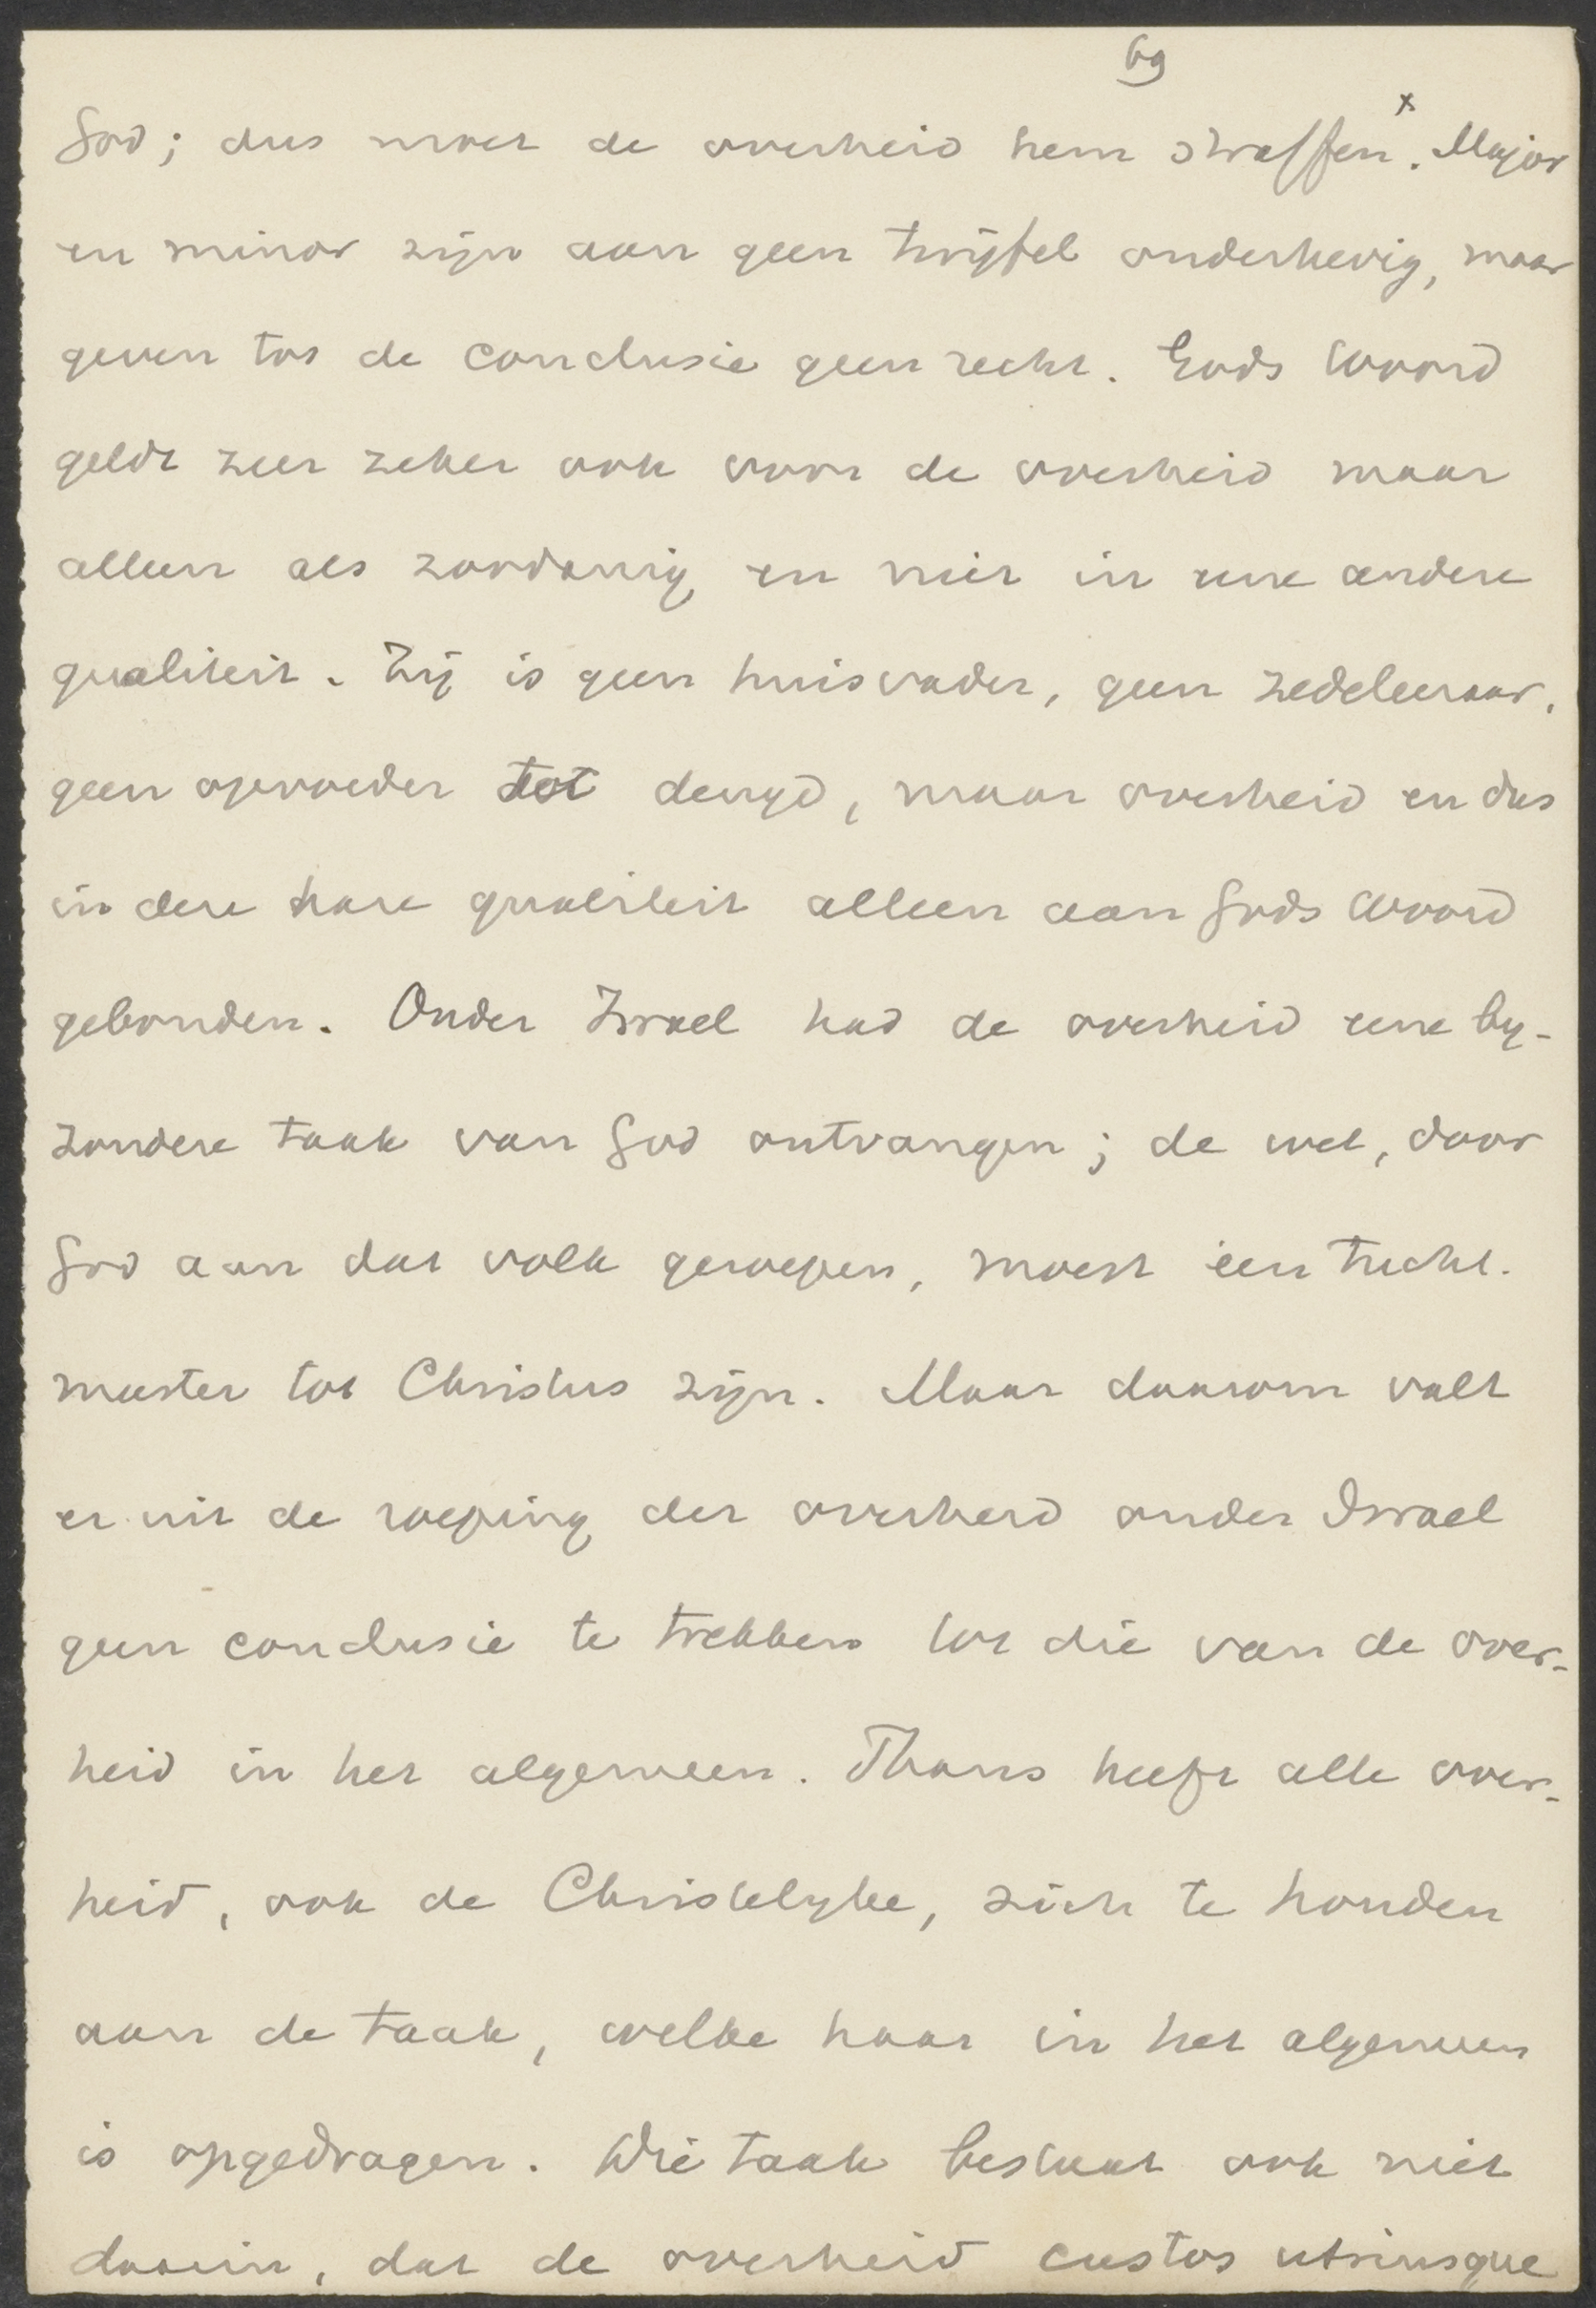 69
God; dus moet de overheid hem straffen x. Major
en minor zijn aan geen twijfel onderhevig, maar
geven tot de conclusie geen recht. Gods Woord
geldt zeer zeker ook voor de overheid maar
alleen als zoodanig en niet in eene andere
qualiteit. Zij is geen huisvader, geen zedeleeraar,
geen opvoeder tot deugd, maar overheid en dus
in deze hare qualiteit alleen aan Gods Woord
gebonden. Onder Israel had de overheid eene by-
zondere taak van God ontvangen; de wet, door
God aan dat volk gegeven, moest een tucht-
meester tot Christus zijn. Maar daarom valt
er uit de roeping der overheid onder Israel
geen conclusie te trekken tot die van de over-
heid in het algemeen. Thans heeft alle over-
heid, ook de Christelyke, zich te houden
aan de taak, welke haar in het algemeen
is opgedragen. Die taak bestaat ook niet
daarin, dat de overheid custos utriusque